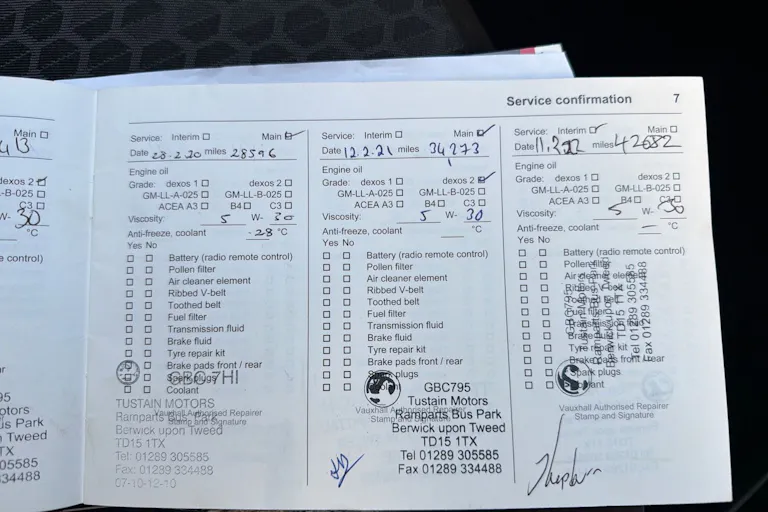 Service confirmation 7
Main
13
dexos 2
GM-LL-B-025
C3
W- 30
°C
e control)
Service: Interim Main
Date 28-2-20 miles 28596
Engine oil
Grade: dexos 1 dexos 2
GM-LL-A-025 GM-LL-B-025
ACEA A3 B4 C3
Viscosity: 5 W- 30
Anti-freeze, coolant -28 °C
Yes No
Battery (radio remote control)
Pollen filter
Air cleaner element
Ribbed V-belt
Toothed belt
Fuel filter
Transmission fluid
Brake fluid
Tyre repair kit
Brake pads front / rear
Spark plugs
Coolant
Vauxhall Authorised Repairer
Stamp and Signature
TUSTAIN MOTORS
Ramparts Bus Park
Berwick upon Tweed
TD15 1TX
Tel: 01289 305585
Fax: 01289 334488
07-10-12-10
Service: Interim Main
Date 12.2.21 miles 34273
Engine oil
Grade: dexos 1 dexos 2
GM-LL-A-025 GM-LL-B-025
ACEA A3 B4 C3
Viscosity: 5 W- 30
Anti-freeze, coolant °C
Yes No
Battery (radio remote control)
Pollen filter
Air cleaner element
Ribbed V-belt
Toothed belt
Fuel filter
Transmission fluid
Brake fluid
Tyre repair kit
Brake pads front / rear
Spark plugs
Coolant
Vauxhall Authorised Repairer
Stamp and Signature
GBC795
Tustain Motors
Ramparts Bus Park
Berwick upon Tweed
TD15 1TX
Tel 01289 305585
Fax 01289 334488
Service: Interim Main
Date 11.3.22 miles 42682
Engine oil
Grade: dexos 1 dexos 2
GM-LL-A-025 GM-LL-B-025
ACEA A3 B4 C3
Viscosity: 5 W- 30
Anti-freeze, coolant - °C
Yes No
Battery (radio remote control)
Pollen filter
Air cleaner element
Ribbed V-belt
Toothed belt
Fuel filter
Transmission fluid
Brake fluid
Tyre repair kit
Brake pads front / rear
Spark plugs
Coolant
Vauxhall Authorised Repairer
Stamp and Signature
GBC795
Tustain Motors
Ramparts Bus Park
Berwick upon Tweed
TD15 1TX
Tel 01289 305585
Fax 01289 334488